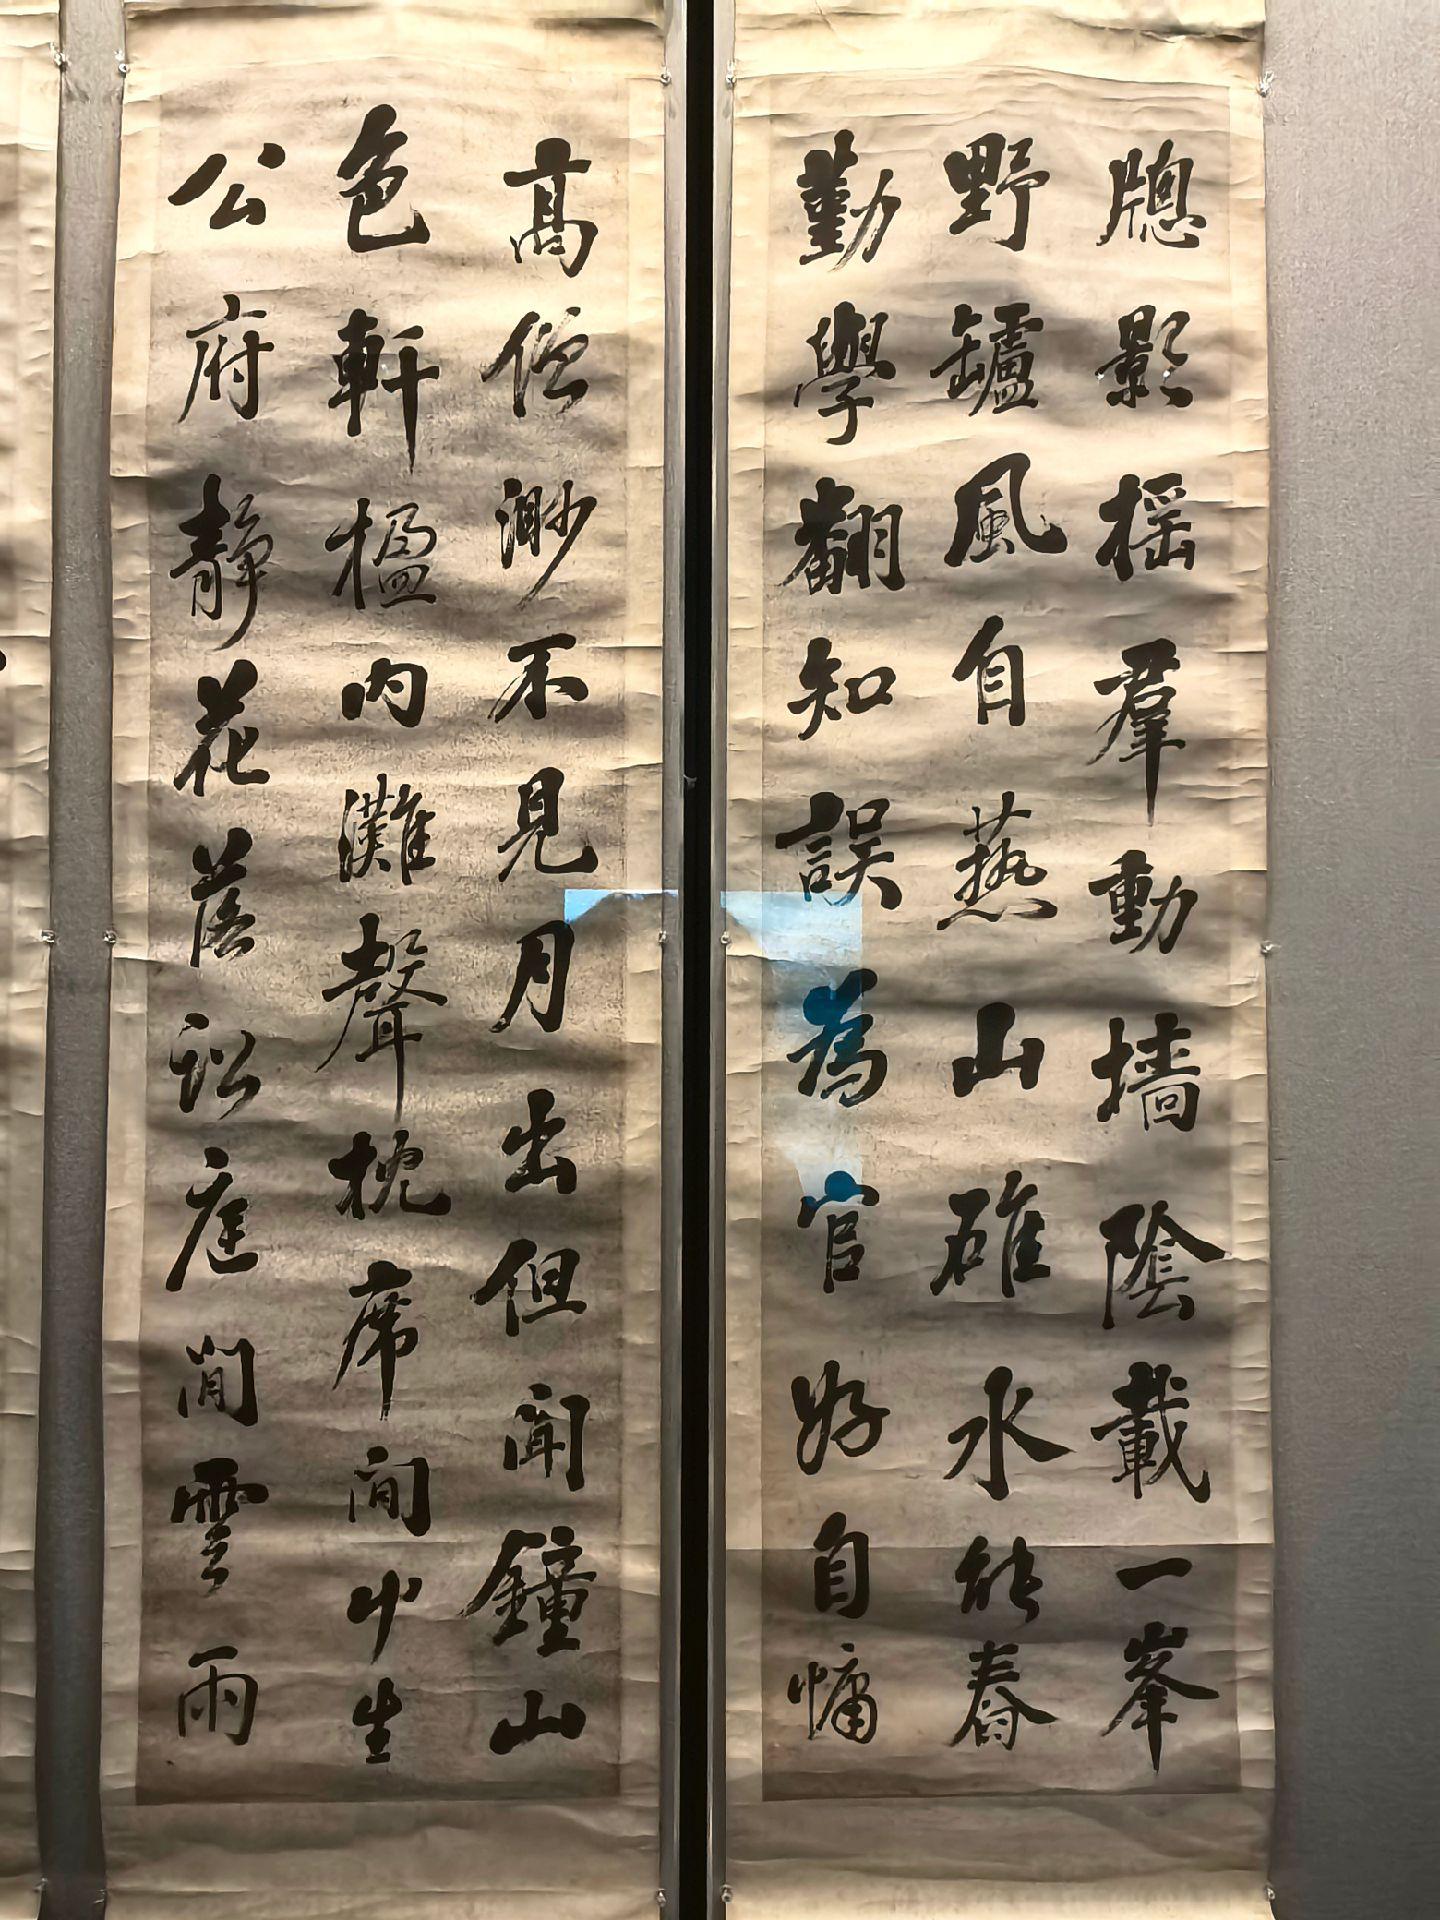 牎影摇羣動墙陰載一峯
野罏風自爇山碓水能舂
勤學翻知誤為官好自慵
高僧渺不見月出但闻鐘山
色軒楹内灘聲枕席间少生
公府静花落訟庭閒雲雨